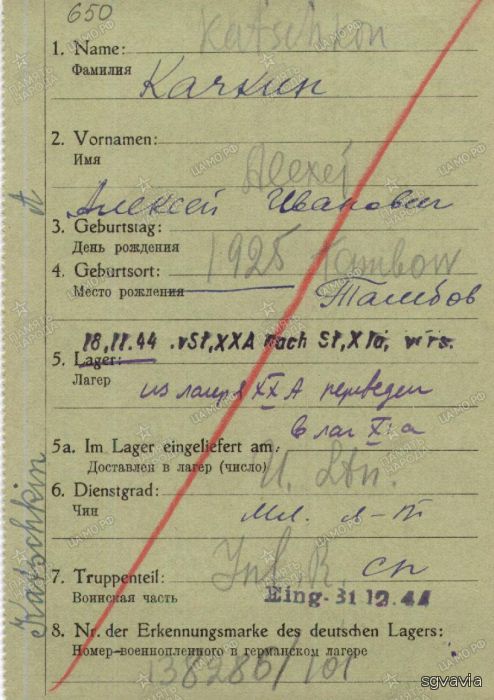 650
Katschkin
1. Name:
Фамилия
Качкин
2. Vornamen:
Имя
Alexej
Алексей Иванович
3. Geburtstag:
День рождения
1925
4. Geburtsort:
Место рождения
Tambow
Тамбов
18.11.44 .vSt,XXA nach St,XIa, wrs.
5. Lager:
Лагер
из лагеря XX A переведен
в лаг XI a
5a. Im Lager eingeliefert am:
Доставлен в лагер (число)
U. Ltn.
6. Dienstgrad:
Чин
мл. л-т
Inf. R.
сп
7. Truppenteil:
Воинская часть
Eing. 31 12.44
8. Nr. der Erkennungsmarke des deutschen Lagers:
Номер военнопленного в германском лагере
Katschkin A
sgvavia